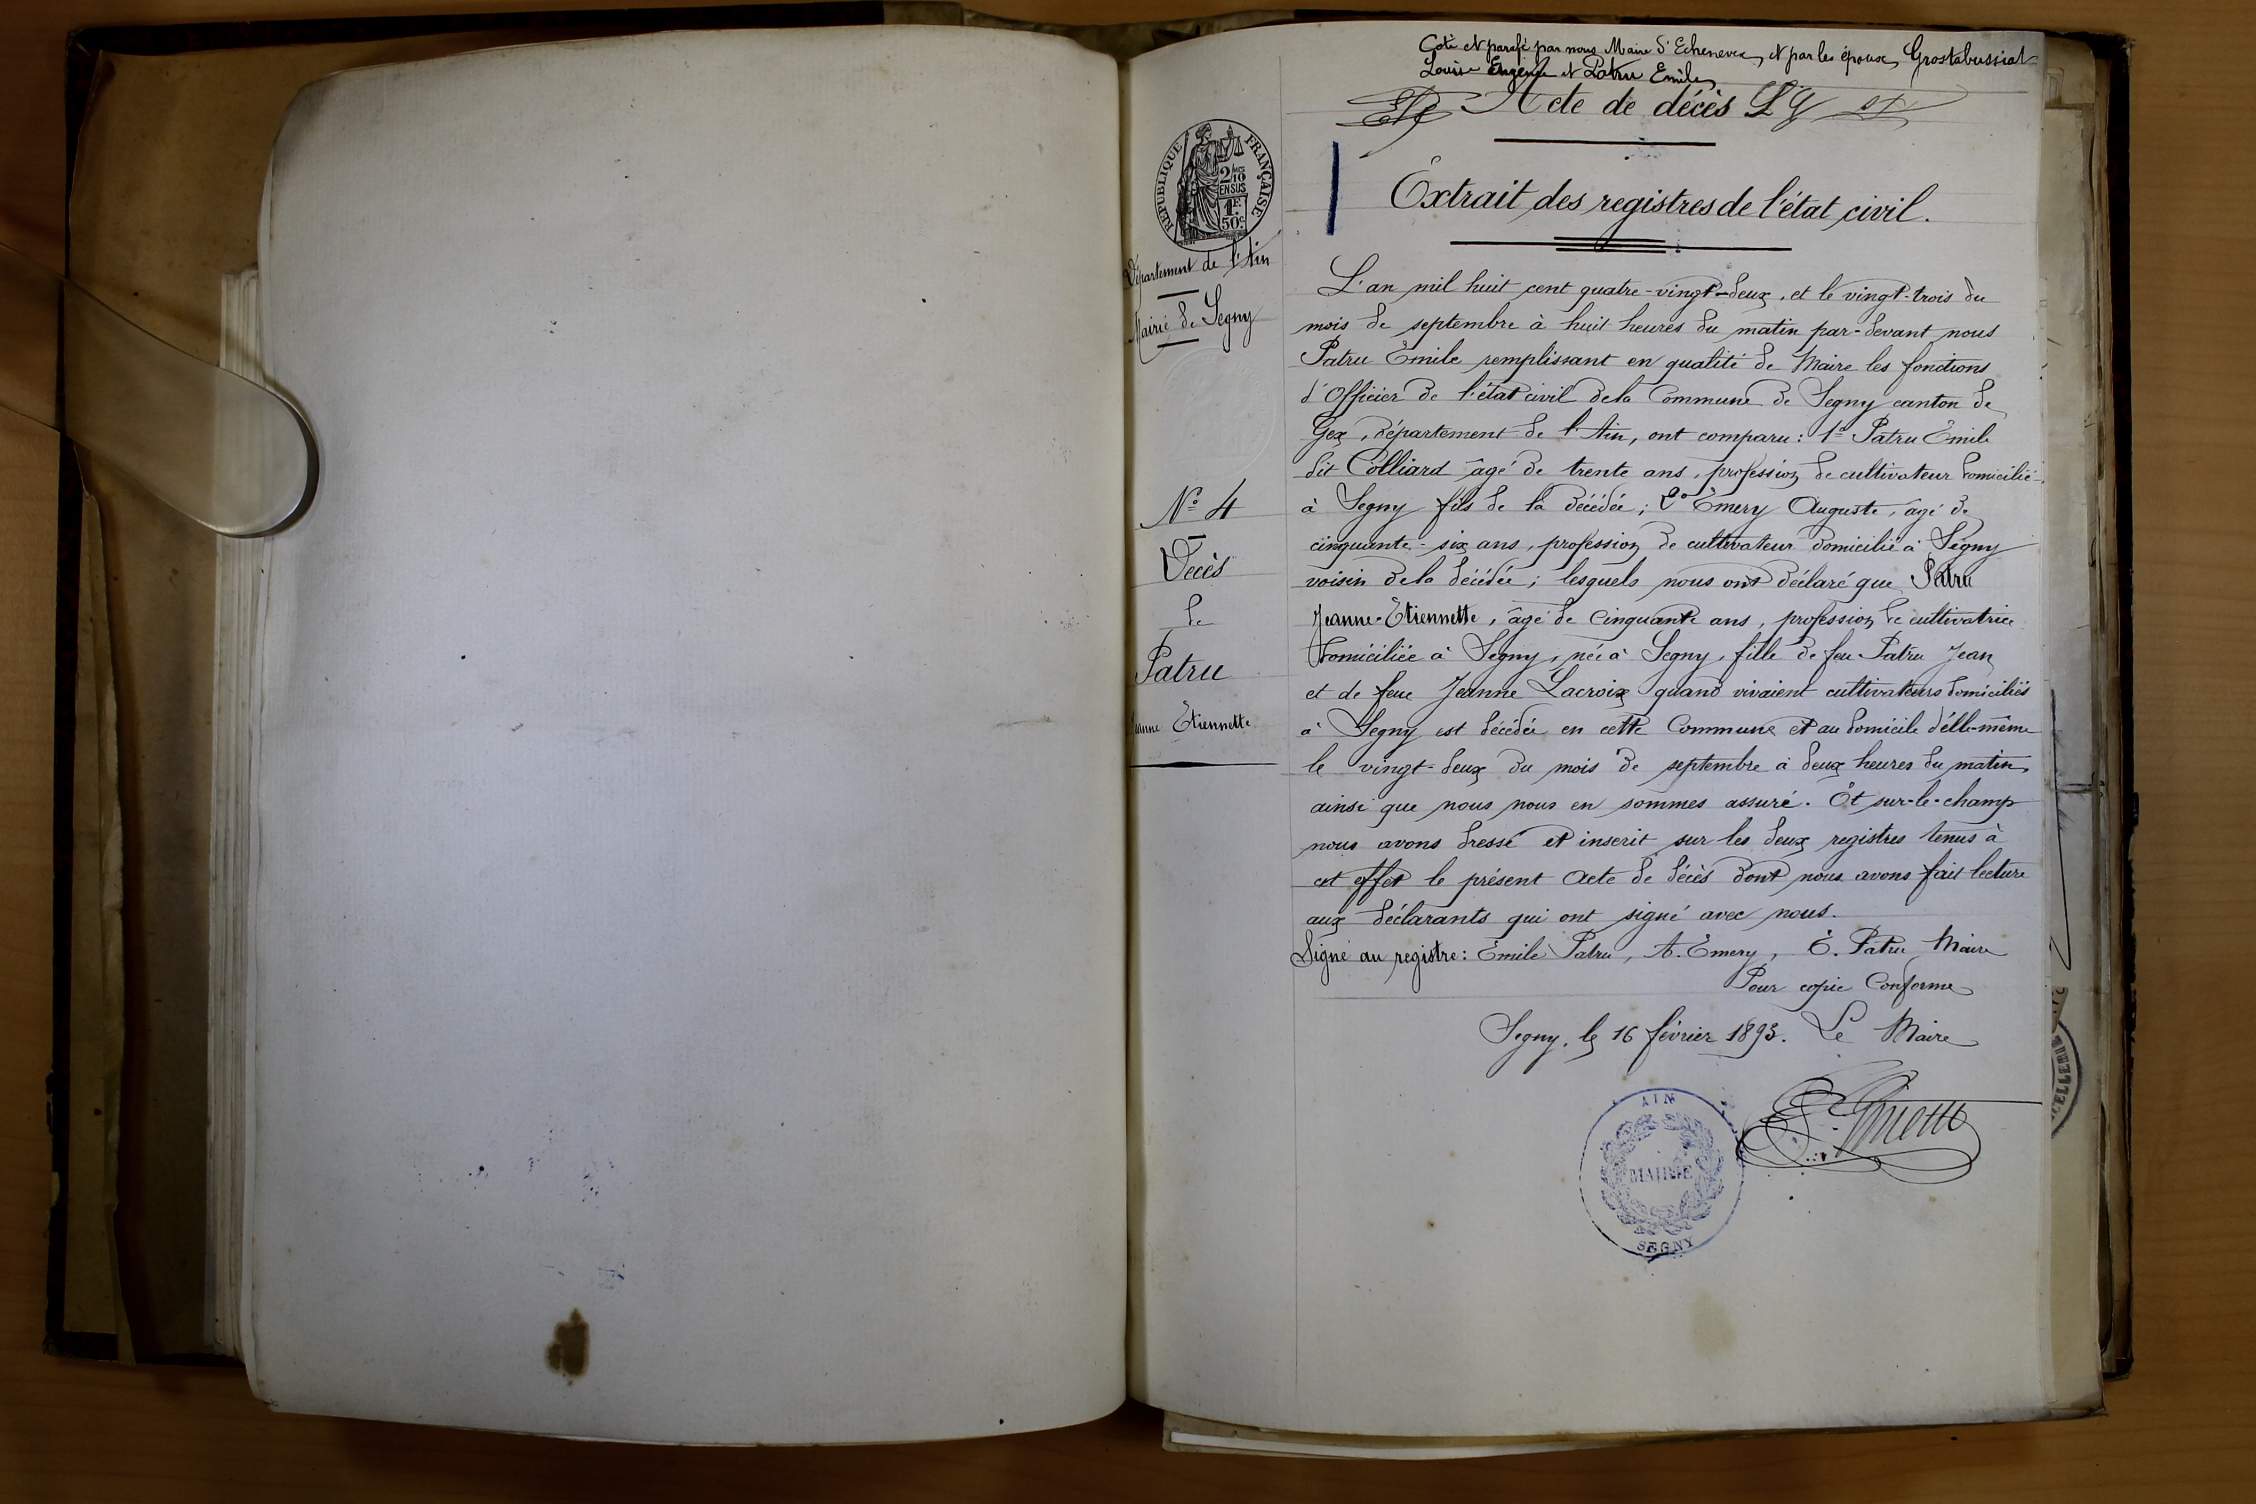 Coté et parafé par nous Maire d'Echenevex, et par les époux, Grostabussiat
Louise Eugénie et Patru Emile
Acte de décès LG
Extrait des registres de l'état civil.
RÉPUBLIQUE FRANÇAISE
2/10
EN SUS
1F
50c
Département de l'Ain
Mairie de Segny
N° 4
Décès
de
Patru
Jeanne Etiennette
L'an mil huit cent quatre-vingt-deux, et le vingt-trois du
mois de septembre à huit heures du matin par-devant nous
Patru Emile remplissant en qualité de Maire les fonctions
d'Officier de l'état civil de la Commune de Segny canton de
Gex, département de l'Ain, ont comparu: 1° Patru Emile
dit Colliard âgé de trente ans, profession de cultivateur domicilié
à Segny fils de la décédée; 2° Emery Auguste, âgé de
cinquante-six ans, profession de cultivateur domicilié à Segny
voisin de la décédée; lesquels nous ont déclaré que Patru
Jeanne-Etiennette, âgé de cinquante ans, profession de cultivatrice
domiciliée à Segny, née à Segny, fille de feu Patru Jean
et de feue Jeanne Lacroix quand vivaient cultivateurs domiciliés
à Segny est décédée en cette Commune et au domicile d'elle-même
le vingt-deux du mois de septembre à deux heures du matin,
ainsi que nous nous en sommes assuré. Et sur-le-champ
nous avons dressé et inscrit sur les deux registres tenus à
cet effet le présent acte de décès dont nous avons fait lecture
aux déclarants qui ont signé avec nous.
Signé au registre: Emile Patru, A. Emery, E. Patru Maire
Pour copie Conforme
Segny, le 16 février 1893. Le Maire
AIN
MAIRIE
SEGNY